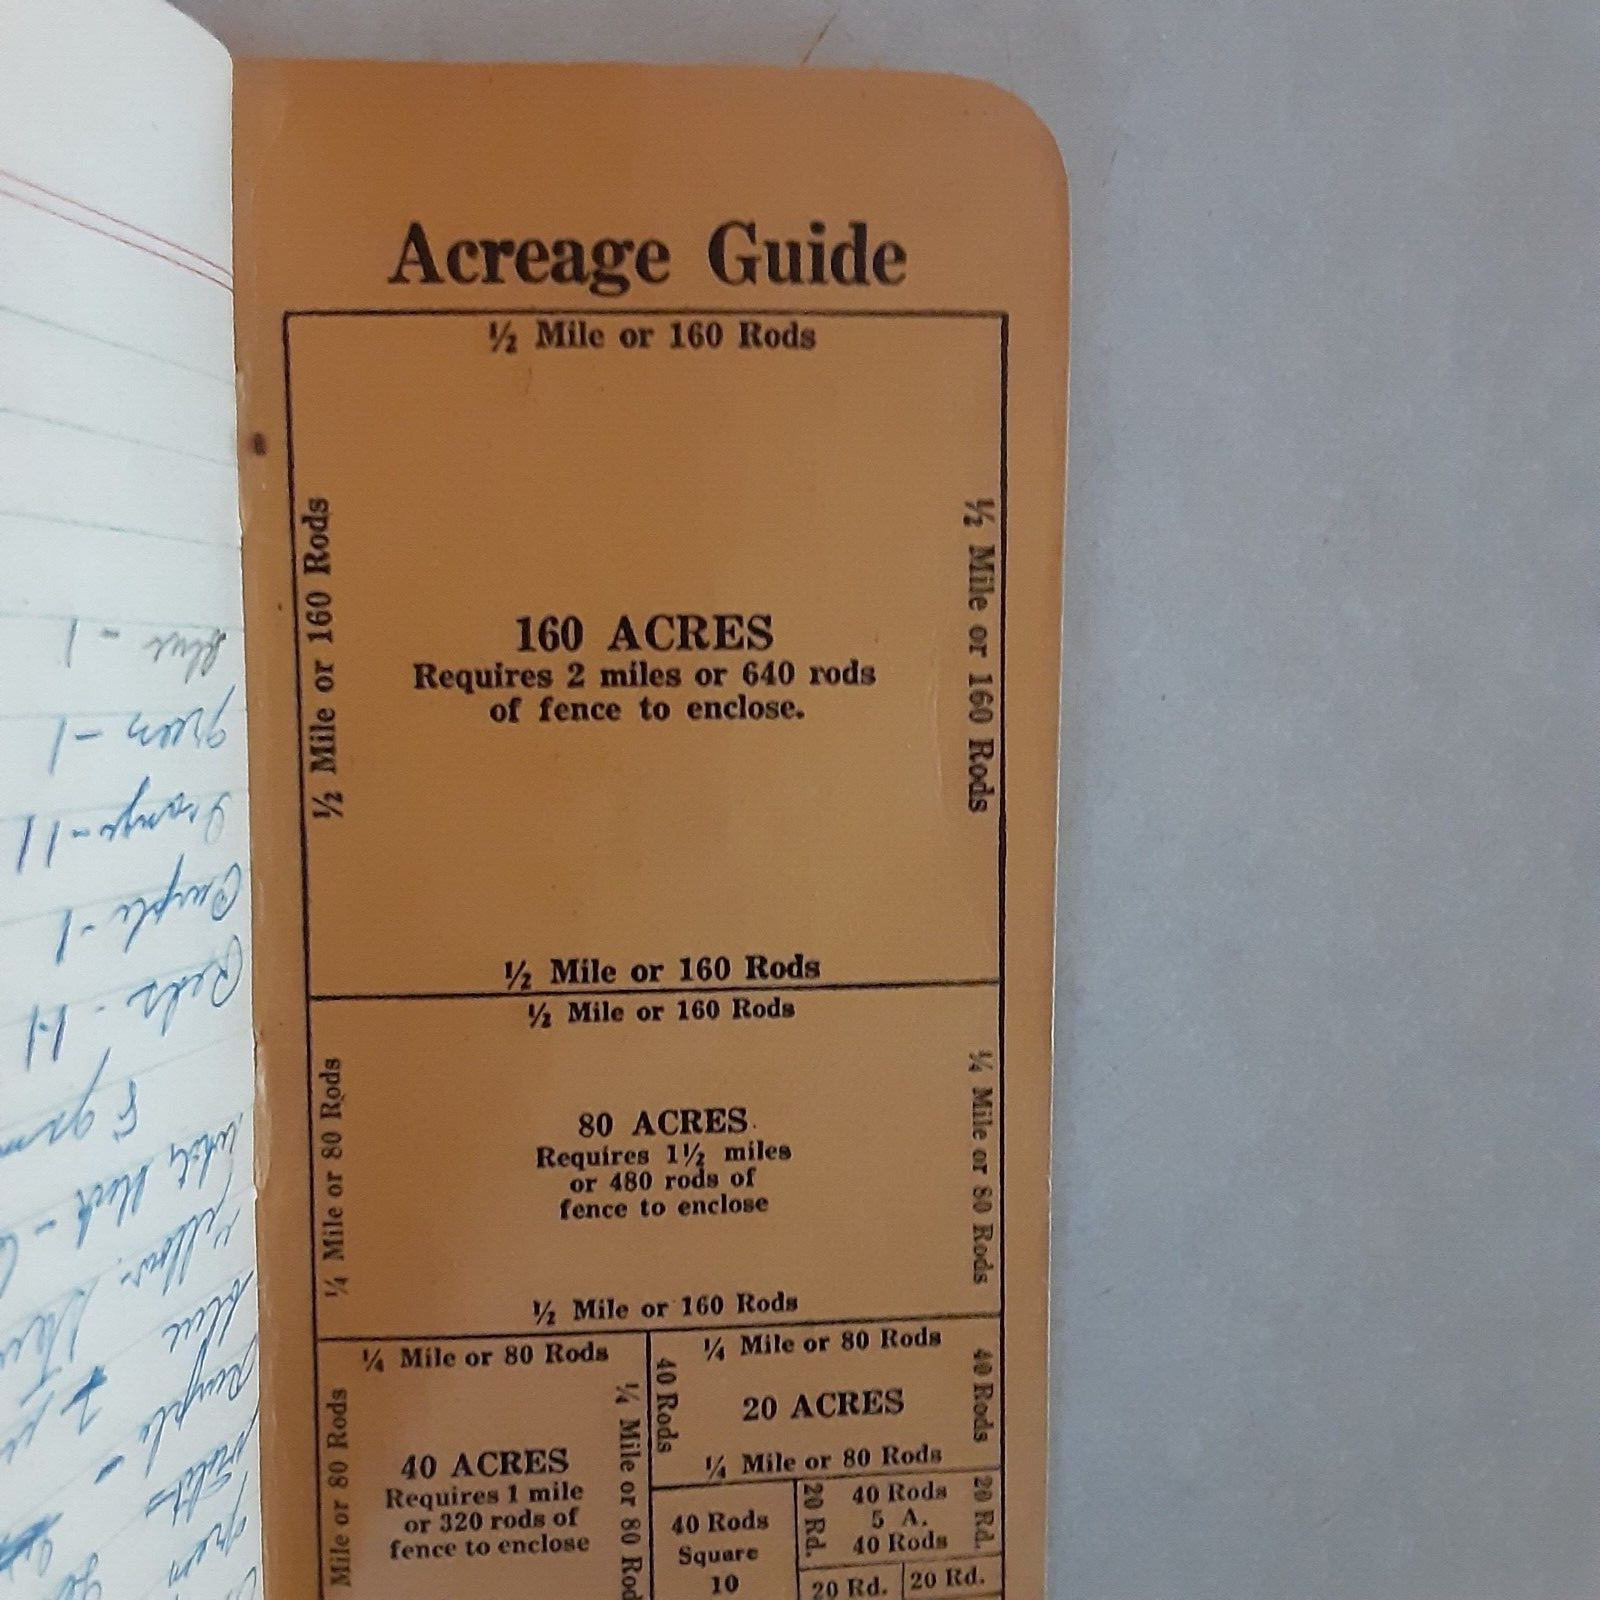 Acreage Guide
½ Mile or 160 Rods
½ Mile or 160 Rods
½ Mile or 160 Rods
160 ACRES
Requires 2 miles or 640 rods
of fence to enclose.
½ Mile or 160 Rods
½ Mile or 160 Rods
¼ Mile or 80 Rods
¼ Mile or 80 Rods
80 ACRES
Requires 1½ miles
or 480 rods of
fence to enclose
½ Mile or 160 Rods
¼ Mile or 80 Rods
Mile or 80 Rods
¼ Mile or 80 Rod
40 ACRES
Requires 1 mile
or 320 rods of
fence to enclose
¼ Mile or 80 Rods
40 Rods
40 Rods
20 ACRES
¼ Mile or 80 Rods
40 Rods
Square
10
20 Rd.
40 Rods
5 A.
40 Rods
20 Rd.
20 Rd.
20 Rd.
blue - 1
green - 1
Orange - 11
Purple - 1